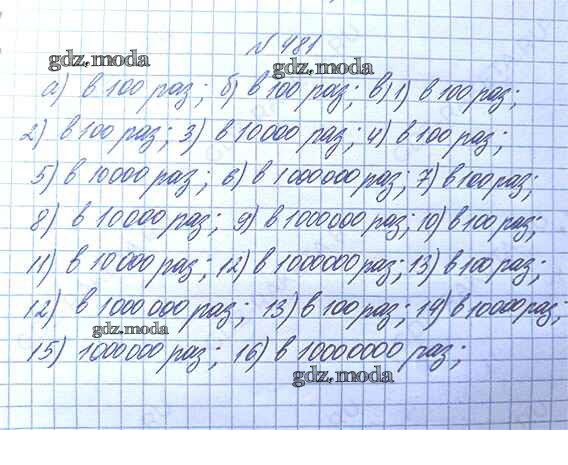 № 481
gdz.moda gdz.moda
а) в 100 раз; б) в 100 раз; в) 1) в 100 раз;
2) в 100 раз; 3) в 10000 раз; 4) в 100 раз;
5) в 10000 раз; 6) в 1000000 раз; 7) в 100 раз;
8) в 10000 раз; 9) в 1000000 раз; 10) в 100 раз;
11) в 10000 раз; 12) в 1000000 раз; 13) в 100 раз;
12) в 1000000 раз; 13) в 100 раз; 14) в 10000 раз;
gdz.moda
15) 1000000 раз; 16) в 10000000 раз;
gdz.moda